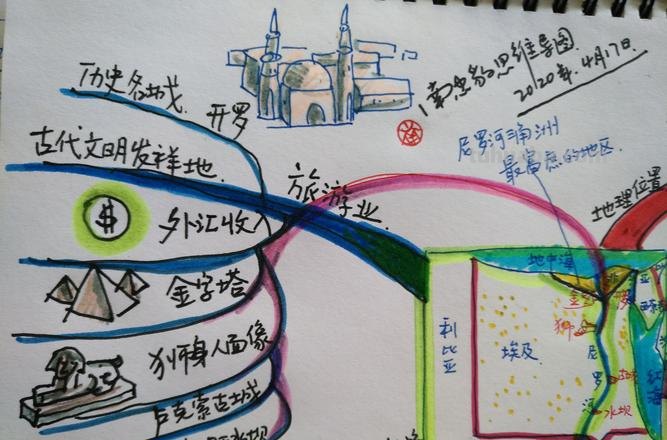 思维导图
2020年.4月17日.
历史名城.
开罗
古代文明发祥地.
旅游业
尼罗河三角洲
最富庶的地区.
地理位置
$
外汇收入
金字塔
狮身人面像
卢克索古城
地中海
利比亚
埃及
尼罗河
水坝
红海